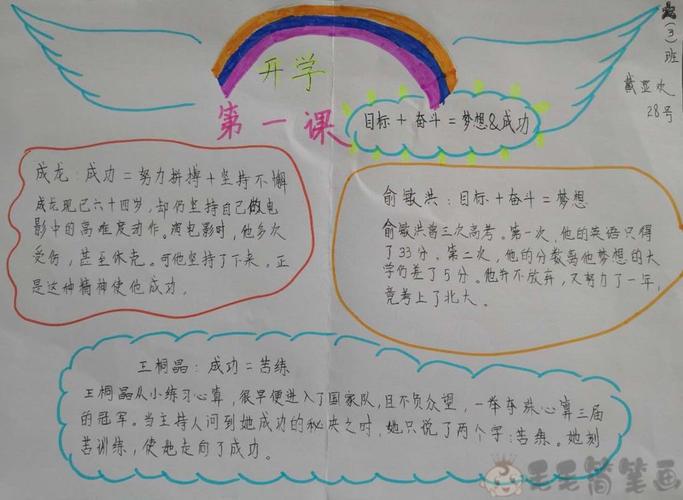 开学
第一课
(3)班
28号
目标+奋斗=梦想&成功
成龙:成功=努力拼搏+坚持不懈
成龙现已六十四岁,却仍坚持自己做电
影中的高难度动作。演电影时,他多次
受伤,甚至休克。可他坚持了下来,正
是这种精神使他成功。
俞敏洪:目标+奋斗=梦想
俞敏洪曾三次高考。第一次,他的英语只得
了33分。第二次,他的分数离他梦想的大
学仍差了5分。他并不放弃,又努力了一年,
竟考上了北大。
王桐晶:成功=苦练
王桐晶从小练习心算,很早便进入了国家队,且不负众望,一举夺珠心算三届
的冠军。当主持人问到她成功的秘诀之时,她只说了两个字:苦练。她刻
苦训练,使她走向了成功。
毛毛简笔画